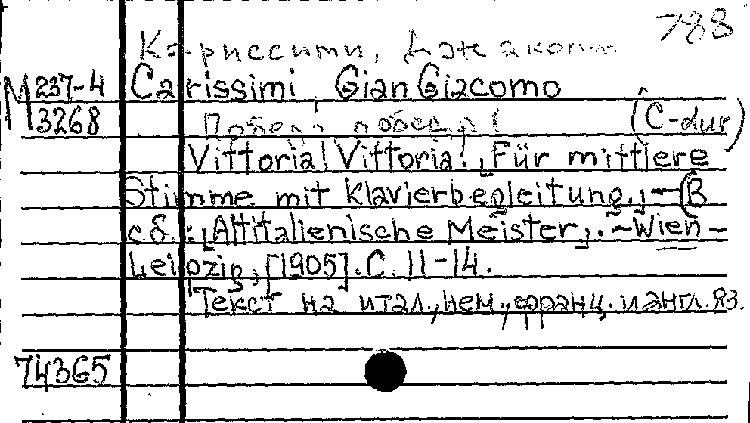 788
Кариссими, Джакомо
М 237-4 Carissimi, Gian Giacomo
13268 Победа! победа! (C-dur)
Vittoria! Vittoria!: „Für mittlere
Stimme mit Klavierbegleitung„. — (В
сб.: „Altitalienische Meister„. – Wien –
Leipzig, [1905]. С. 11-14.
Текст на итал., нем., франц. и англ. яз.
74365